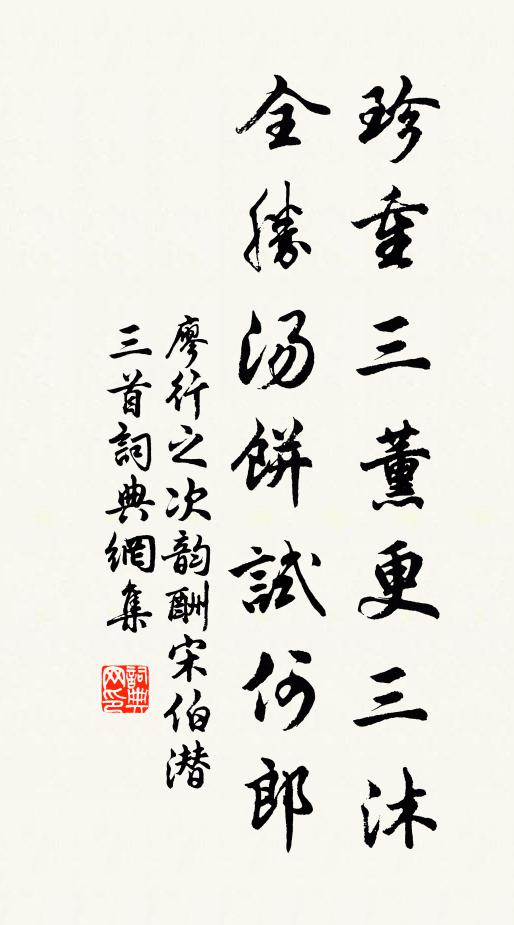 珍重三薰更三沐
全勝湯餅試何郎
廖行之次韵酬宋伯潜
三首詞典網集
詞典网印